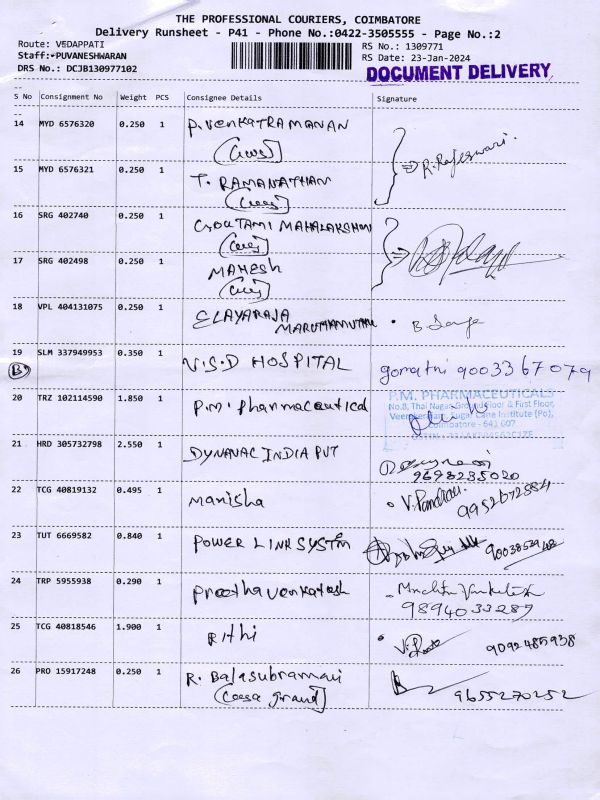 THE PROFESSIONAL COURIERS, COIMBATORE
Delivery Runsheet - P41 - Phone No.:0422-3505555 - Page No.:2
Route: VEDAPPATI
Staff: PUVANESHWARAN
DRS No.: DCJB130977102
RS No.: 1309771
RS Date: 23-Jan-2024
DOCUMENT DELIVERY
S No Consignment No Weight PCS Consignee Details Signature
14 MYD 6576320 0.250 1 P. VENKATRAMANAN
R. Rajeswari.
15 MYD 6576321 0.250 1 T. RAMANATHAN
16 SRG 402740 0.250 1 GOUTAMI MAHALAKSHMI
17 SRG 402498 0.250 1 MAHESH
18 VPL 404131075 0.250 1 ELAYARAJA
MARUTHAMUTHU
19 SLM 337949953 0.350 1 V.S.D HOSPITAL gomathi 9003367079
B
20 TRZ 102114590 1.850 1 P.M. Pharmaceutical
P.M. PHARMACEUTICALS
No.8, Thai Nagar, Ground Floor & First Floor,
Veerakeralam, Sugar Cane Institute (Po),
Coimbatore - 641 007
21 HRD 305732798 2.550 1 DYNAVAC INDIA PVT
9698235020
22 TCG 40819132 0.495 1 Manisha V. Pandian. 9952672884
23 TUT 6669582 0.840 1 POWER LINK SYSTM
24 TRP 5955938 0.290 1 Preetha venkatesh
9894033289
25 TCG 40818546 1.900 1 Rithi 9092485938
26 PRO 15917248 0.250 1 R. Balasubramani 9655270252
(Casa grand)